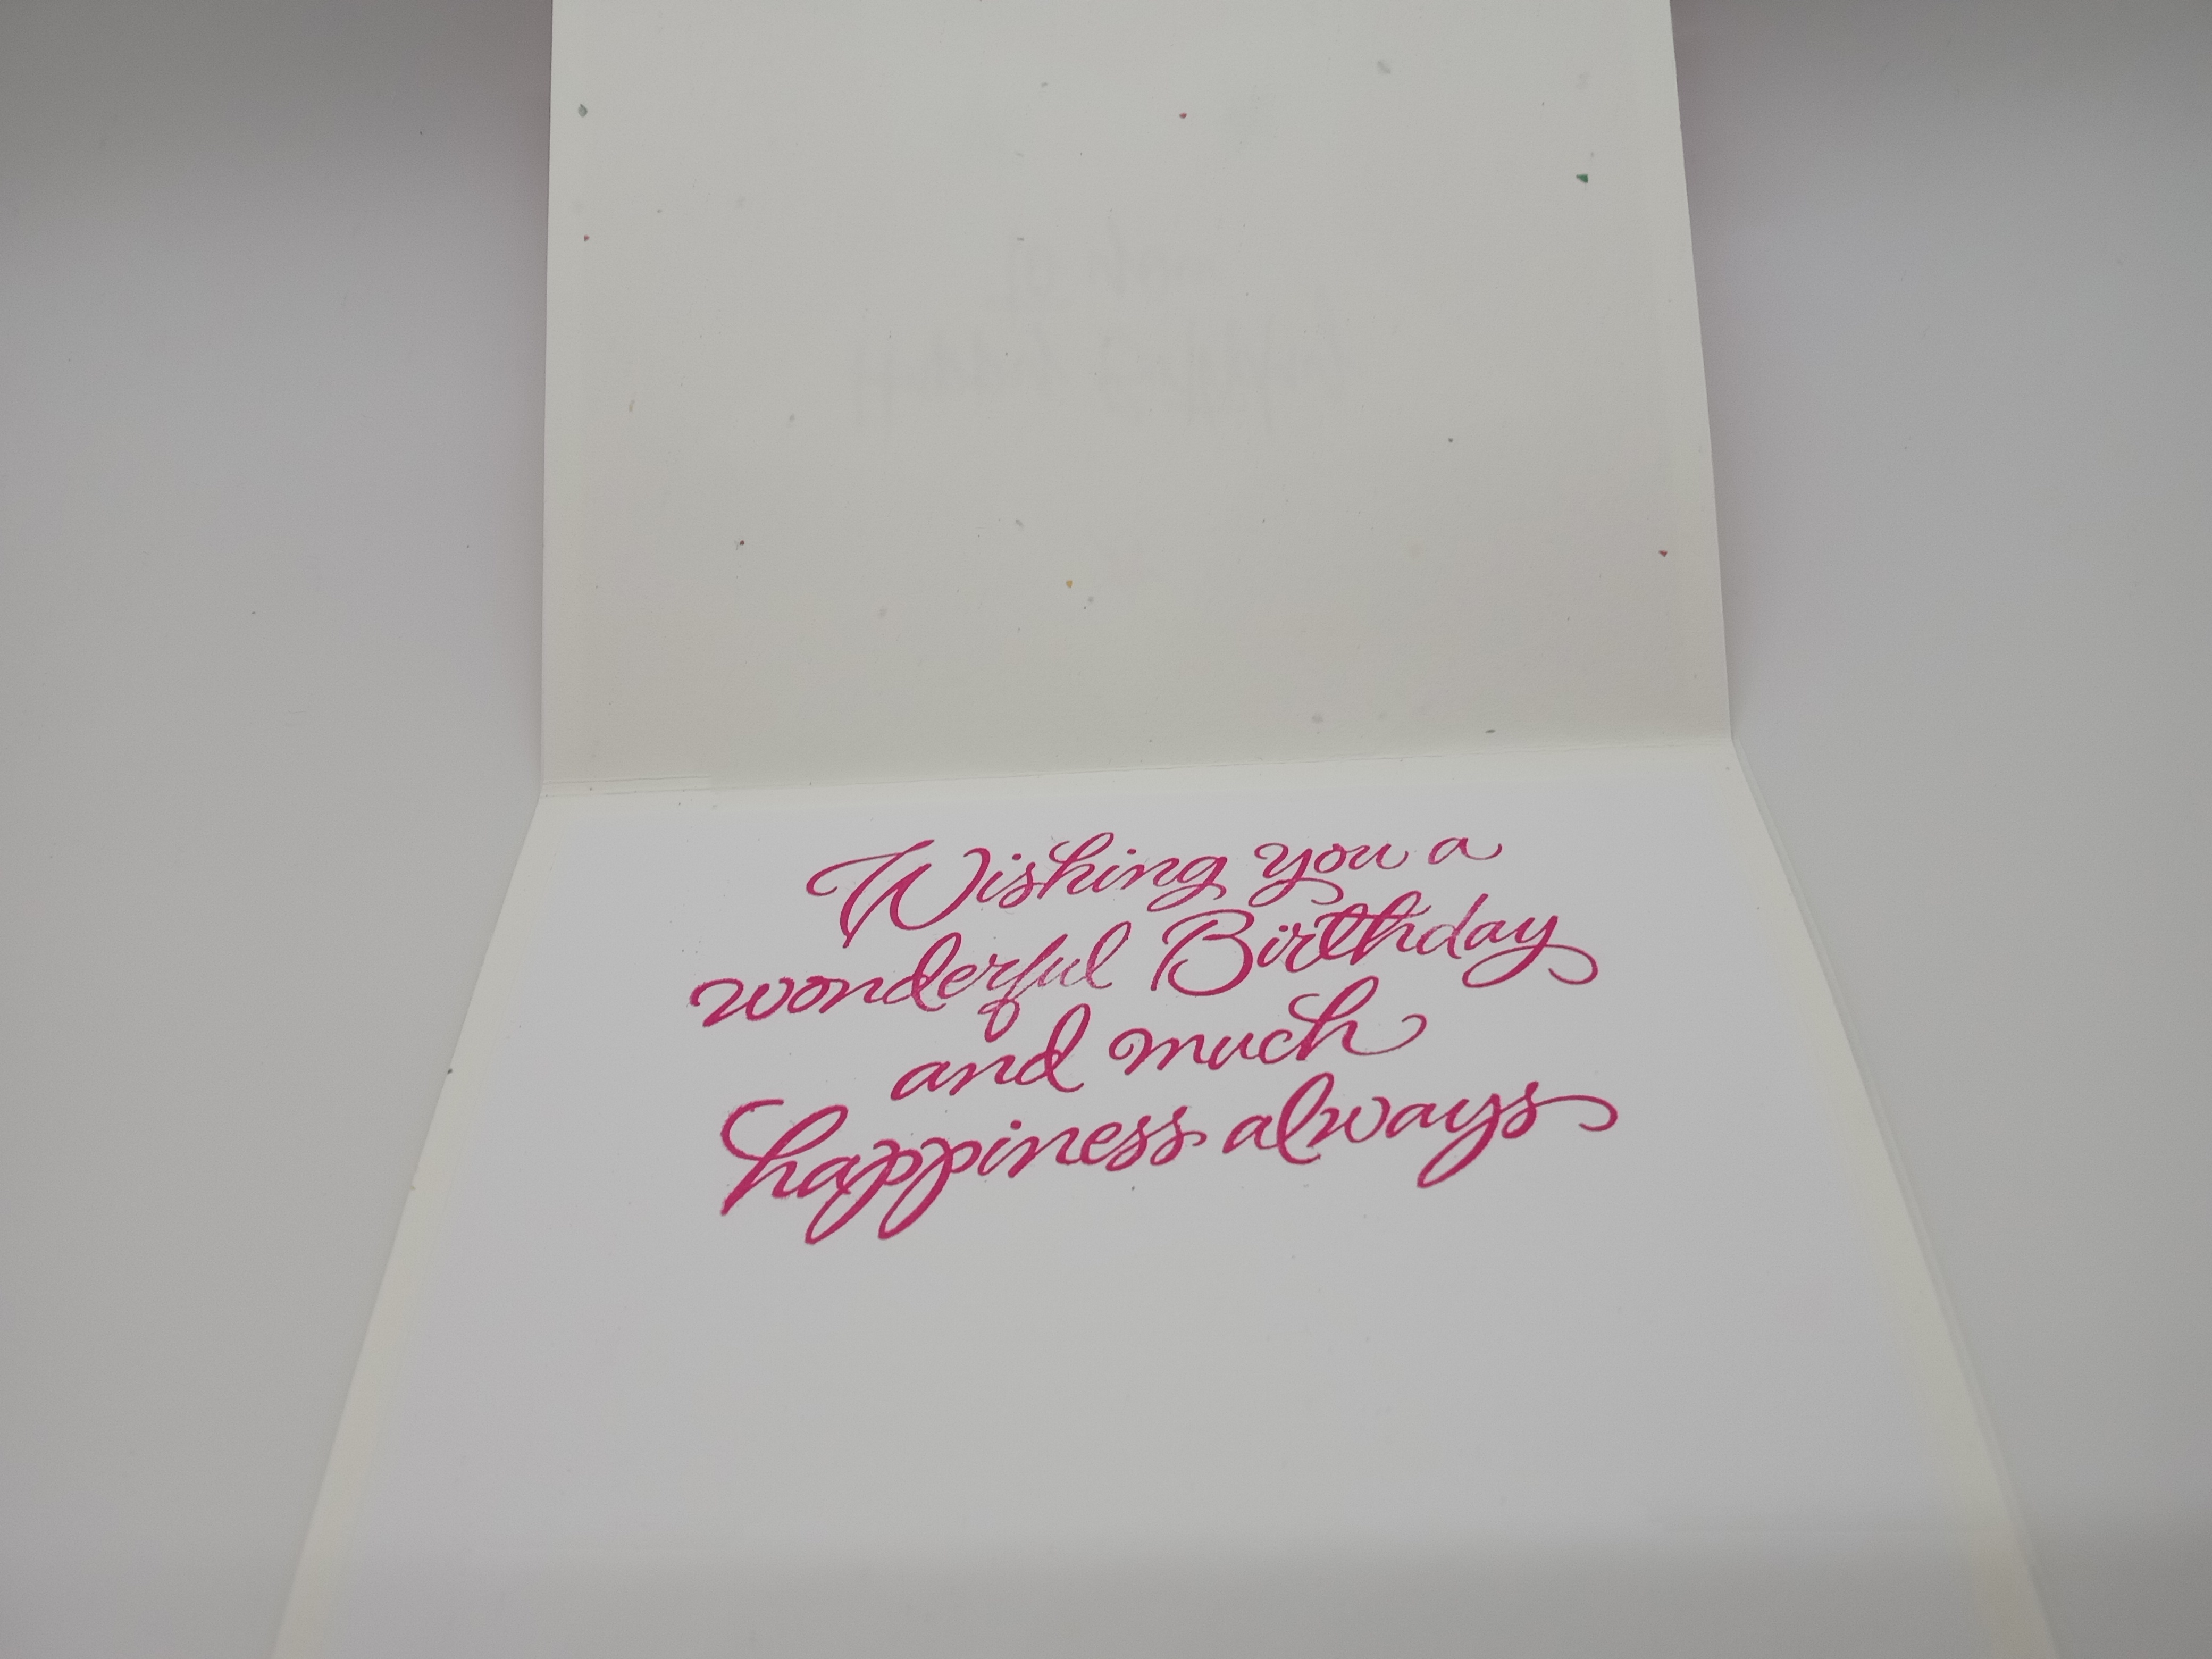 Wishing you a
wonderful Birthday
and much
happiness always